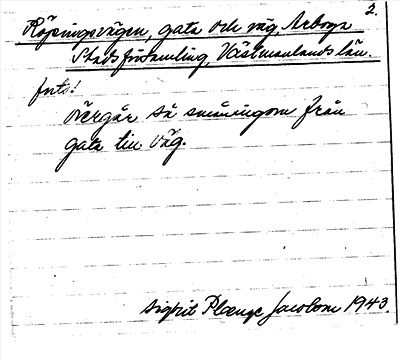 2.
Köpingsvägen, gata och väg, Arboga
Stadsförsamling, Västmanlands län.
forts!
övergår så småningom från
gata till väg.
Sigrit Plænge Jacobson 1943.